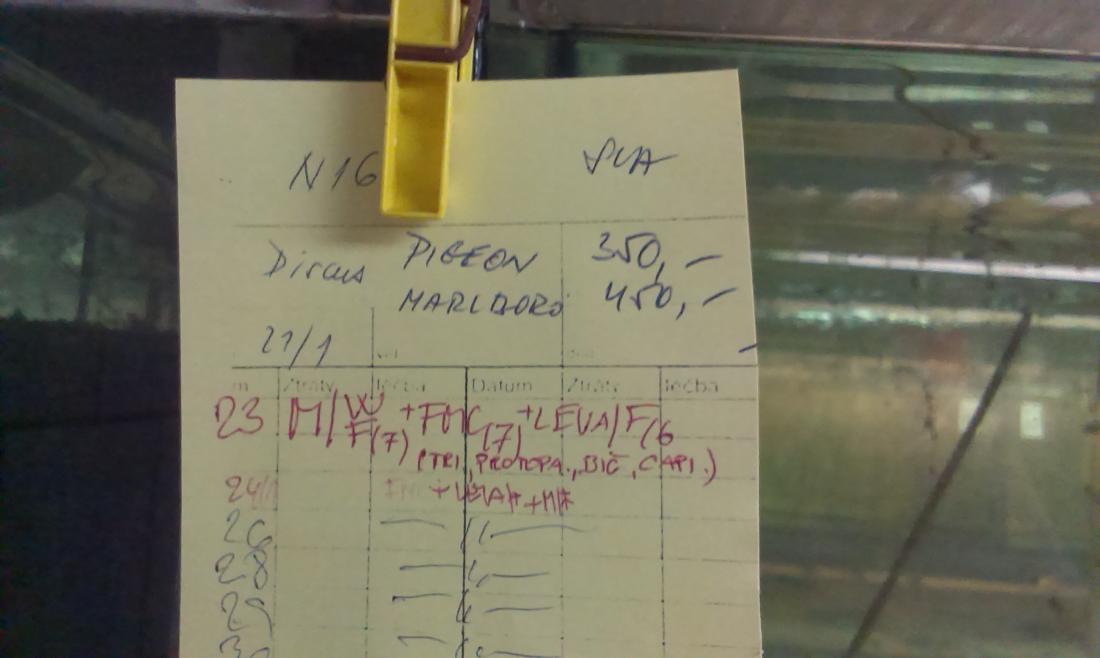 N16 SLA
Discus PIGEON 350,-
MARLBORO 450,-
21/1
m Ztráty léčba Datum Ztráty léčba
23 M/W +FMC(7) +LEVA/F/6
F(7)
(TRI, PROTOPA., BIČ, CAPI.)
24/1 FMC +LEVA/F +M/F
26 — 11 —
28 — 11 —
29 — 11 —
30 — 11